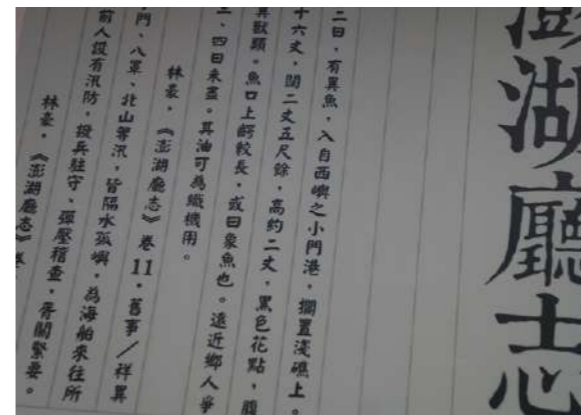 澎湖廳志
二日，有異魚，入自西嶼之小門港，擱置淺礁上。
十六丈，闊二丈五尺餘，高約二丈，黑色花點，腹
獸類。魚口上齶較長，或曰象魚也。遠近鄉人爭
三、四日未盡。其油可為織機用。
林豪，《澎湖廳志》卷11．舊事／祥異
門、八罩、北山等汛，皆隔水孤嶼，為海舶來往所
前人設有汛防，撥兵駐守、彈壓稽查，胥關緊要。
林豪，《澎湖廳志》卷